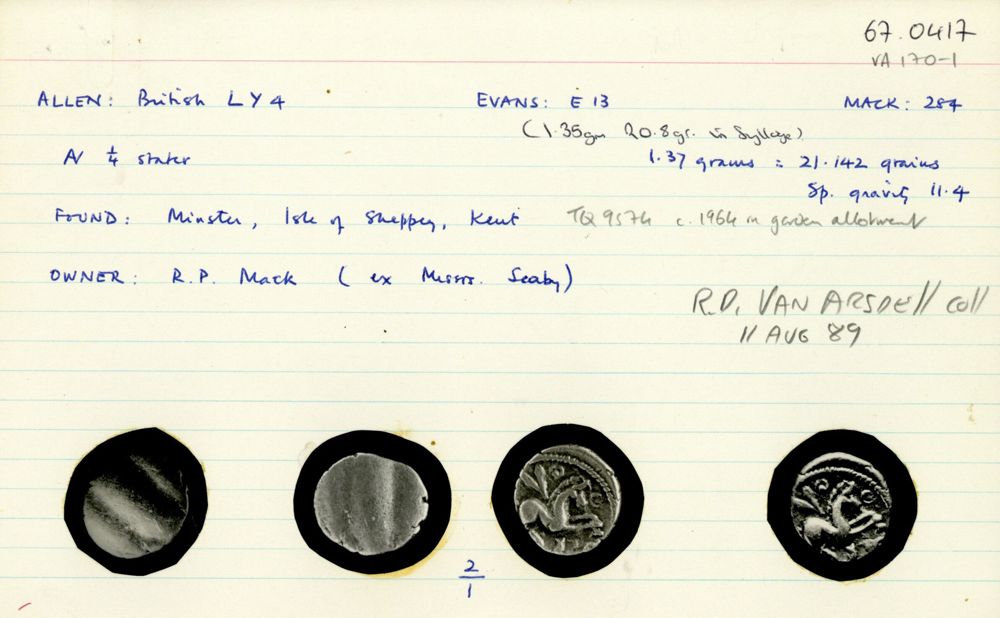 67.0417
VA 170-1
ALLEN: British LY4 EVANS: E 13 MACK: 284
(1.35gm 20.8gr. in Sylloge)
N ¼ stater 1.37 grams = 21.142 grains
Sp. gravity 11.4
FOUND: Minster, Isle of Sheppey, Kent TQ 9574 c. 1964 in garden allotment
OWNER: R.P. Mack (ex Messrs. Seaby)
R.D. VAN ARSDELL coll
11 AUG 89
2
1